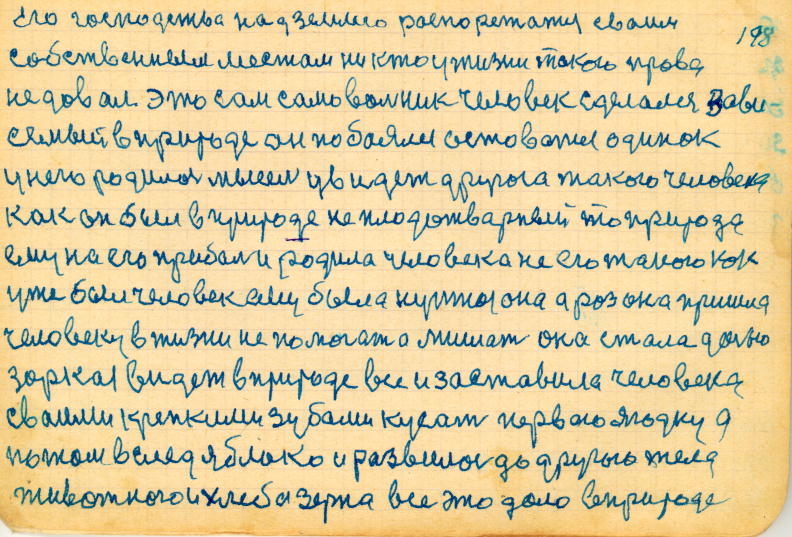 его господства надземлею роспорежатся своим
198
собственным местам ни кто у жизни такого права
недовал. Это сам самоволник человек сделался Зави
семый в природе он побоялся остоватся одинок
у него родилась мысел увидет другога такого человека
как он был в природе не плодотварный то природа
ему на его прибавил родила человека не его такого как
уже был человек ему была нужна она а роз она пришла
человеку в жизни не помогат а мишат она стала дално
зоркая видет в природе все и заставила человека
сваими крепкими зубами кусат первою ягодку а
потом вслед яблоко и развилос до другого тела
животного и хлеба зерна все это дало в природе